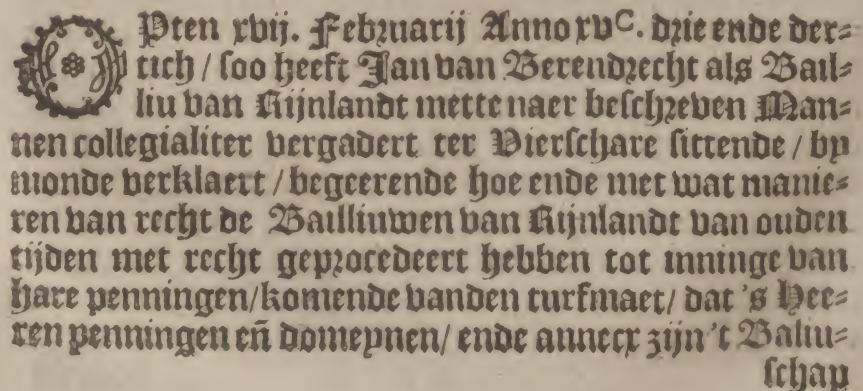 OPten xvij. Februarij Anno xvC. drie ende der=
tich / soo heeft Jan van Berendrecht als Bail=
liu van Rijnlandt mette naer beschreven Man=
nen collegialiter vergadert ter Vierschare sittende / by
monde verklaert / begeerende hoe ende met wat manie=
ren van recht de Bailliuwen van Rijnlandt van ouden
tijden met recht geprocedeert hebben tot inninge van
hare penningen/komende vanden turfmaet/ dat 's Hee=
ren penningen eñ domeynen/ ende annecx zijn 't Baliu=
schap